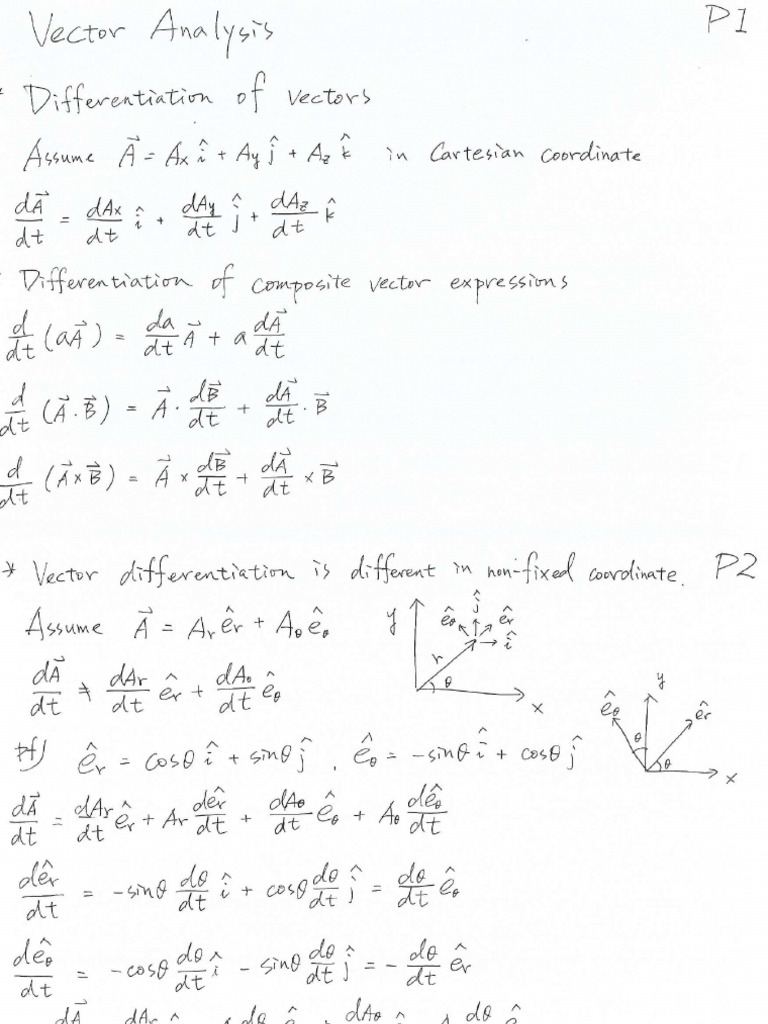 Vector Analysis P1
* Differentiation of vectors
Assume A⃗ = Ax î + Ay ĵ + Az k̂ in Cartesian coordinate
dA⃗/dt = dAx/dt î + dAy/dt ĵ + dAz/dt k̂
Differentiation of composite vector expressions
d/dt (aA⃗) = da/dt A⃗ + a dA⃗/dt
d/dt (A⃗·B⃗) = A⃗ · dB⃗/dt + dA⃗/dt · B⃗
d/dt (A⃗×B⃗) = A⃗ × dB⃗/dt + dA⃗/dt × B⃗
* Vector differentiation is different in non-fixed coordinate. P2
Assume A⃗ = Ar êr + Aθ êθ
y êθ ĵ êr î r θ x
dA⃗/dt ≠ dAr/dt êr + dAθ/dt êθ
y êθ êr θ θ x
pf) êr = cosθ î + sinθ ĵ , êθ = -sinθ î + cosθ ĵ
dA⃗/dt = dAr/dt êr + Ar dêr/dt + dAθ/dt êθ + Aθ dêθ/dt
dêr/dt = -sinθ dθ/dt î + cosθ dθ/dt ĵ = dθ/dt êθ
dêθ/dt = -cosθ dθ/dt î - sinθ dθ/dt ĵ = - dθ/dt êr